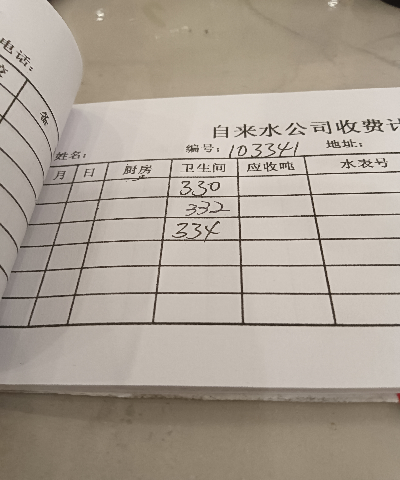 电话:
自来水公司收费计
姓名: 编号: 103341 地址:
月 日 厨房 卫生间 应收吨 水表号
330
332
334